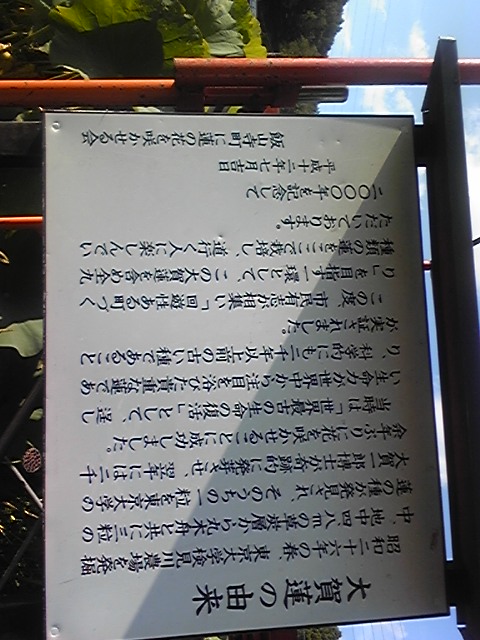 大賀蓮の由来
昭和二十六年の春、東京大学検見川農場を発掘
中、地中四・八mの草炭層から丸木舟と共に三粒の
蓮の種が発見され、そのうちの一粒を東京大学の
大賀一郎博士が奇跡的に発芽させ、翌年には二千
余年ぶりに花を咲かせることに成功しました。
当時は「世界最古の生命の復活」として、逞し
い生命力が世界中から注目を浴びた貴重な蓮であ
り、科学的にも二千年以上前の古い種であること
が実証されました。
この度、市民有志が相集い「回遊性ある町づく
り」を目指す一環として、この大賀蓮を含め全九
種類の蓮をここで栽培し、道行く人に楽しんでい
ただいております。
二〇〇〇年を記念して
平成十二年七月吉日
飯山寺町に蓮の花を咲かせる会